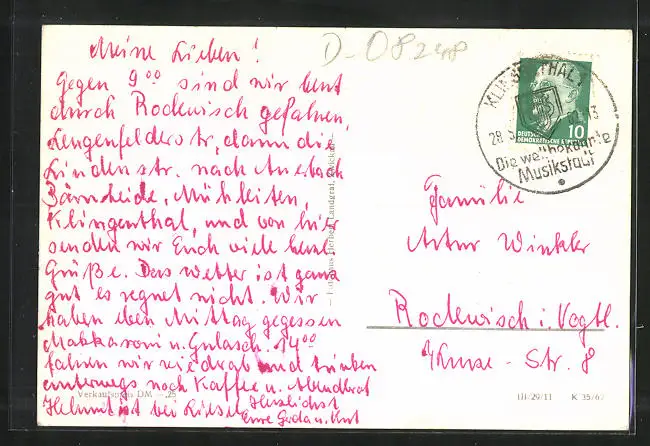 Meine Lieben!
Gegen 9⁰⁰ sind wir
durch Rodewisch gefahren,
Lengenfelderstr, dann die
Lindenstr. nach Auerbach
Bärnheide, Mühlleiten,
Klingenthal, und von hier
senden wir Euch viele herzl.
Grüße. Das Wetter ist ganz
gut es regnet nicht. Wir
haben eben Mittag gegessen
Makkaroni u. Gulasch. 14⁰⁰
fahren wir wieder ab und trinken
unterwegs noch Kaffee u. Abendbrot
Helmut ist bei Liesel
Herzlichst
Eure Gerda u. Kurt
Verkaufspreis DM —,25
Landgraf, Zwickau
D-082
KLINGENTHAL
28.3.
13
Die weltbekannte
Musikstadt
DEUTSCHE
DEMOKRATISCHE
10
Familie
Artur Winkler
Rodewisch i. Vogtl.
Str. 8
III/29/11 K 35/67